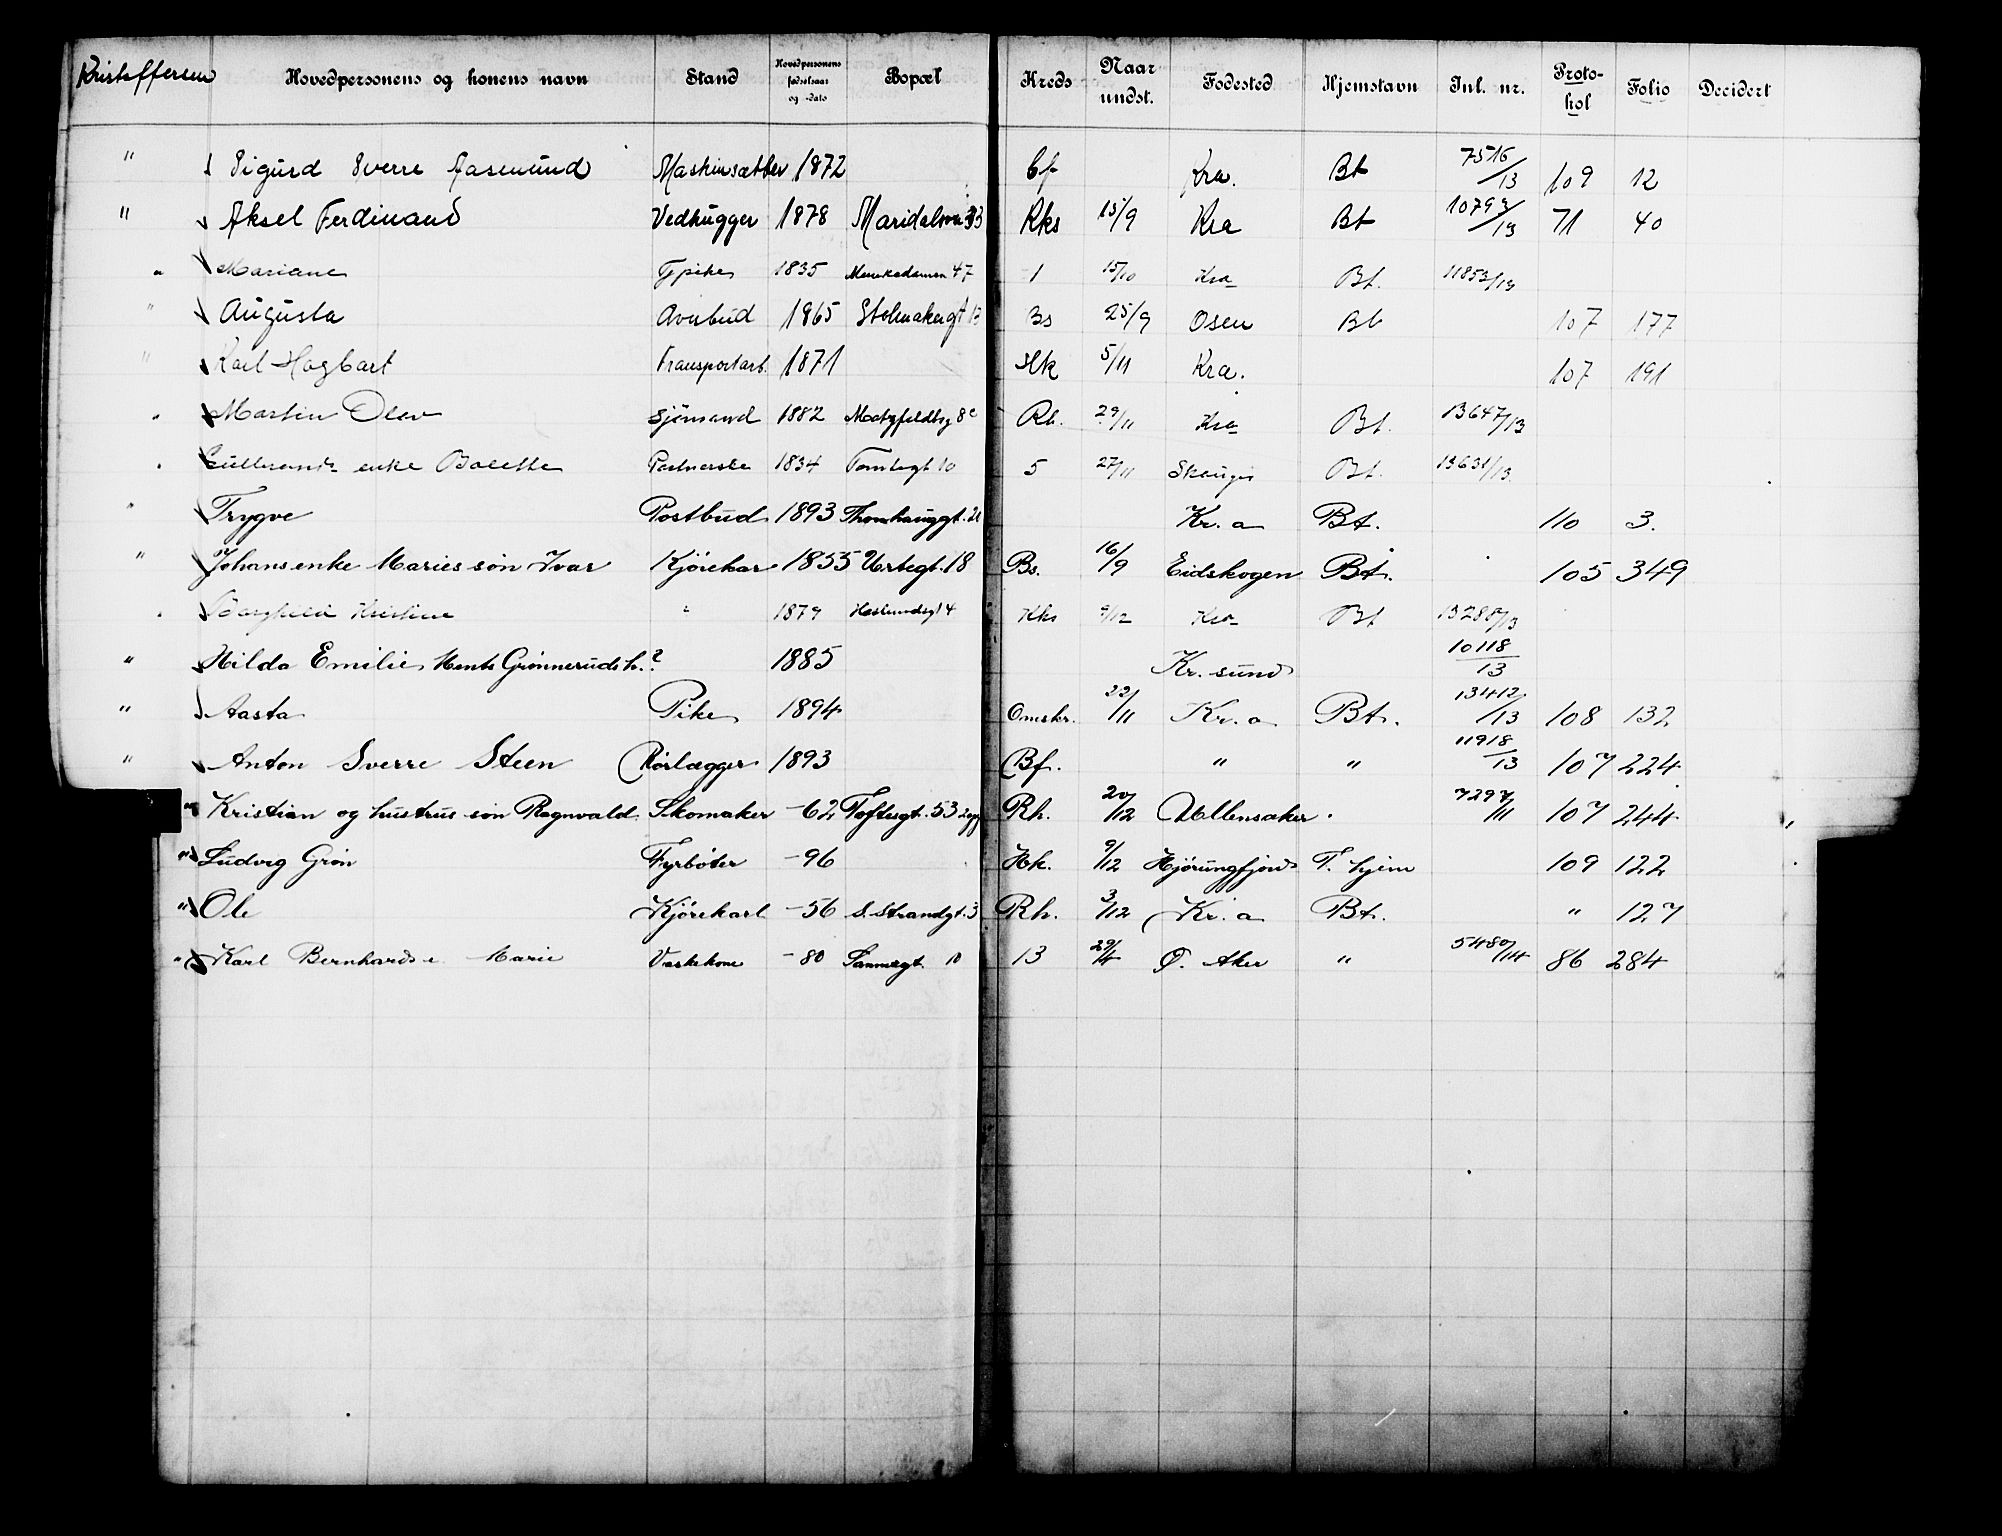 Kristoffersen Hovedpersonens og konens navn Stand Hovedpersonens fødselsaar og -dato Bopæl Kreds Naar undst. Fødested Hjemstavn Inl. nr. Protokol Folio Decidert
" Sigurd Sverre Maskinsætter 1872 Kra. Bt 7516/13 109 12
" Aksel Ferdinand Vedhugger 1878 Maridalsvn 33 Kks 15/9 Kra Bt 10793/13 71 40
" Mariane Fpike 1835 Munkedamsv 47 1 15/10 Kra Bt. 11853/13
" Augusta Avisbud 1865 Stolmakergt 13 Bs 25/9 Osen Bt 107 177
" Karl Hagbart Transportarb. 1871 Hk 5/11 Kra. 107 191
" Martin Olav Sjømand 1882 Rh. 29/11 Kra Bt. 13647/13
" Gulbrands enke Bolette 1834 Tomtegt 10 5 27/11 Bt. 13631/13
" Trygve Postbud 1893 Thorshauggt. Kr. a Bt. 110 3.
" Johans enke Maries søn Ivar Kjørekar 1855 Urtegt. 18 Bs. 16/9 Eidskogen Bt. 105 349
" Borghild Kristine " 1879 Haslumdsgt 4 Kks 9/12 Kra Bt 13288/13
" Hilda Emilie Grønneruds h. ? 1885 Kr. sund 10118/13
" Aasta Pike 1894 Omskr. 22/11 Kr. a Bt. 13412/13 108 132
" Anton Sverre Steen Rørlægger 1893 Bf. " " 11918/13 107 224
" Kristian og hustrus søn Ragnvald Skomaker -62 Toftesgt. 53 Rh. 20/12 Ullensaker " 7297/11 107 244
" Ludvig Grøn Fyrbøter -96 Hk. 9/12 Hjørungfjord T. hjem 109 122
" Ole Kjørekarl -56 S. Strandgt. 3 Rh. 3/12 Kr. a Bt. " 127
" Karl Bernhards e. Marie Vaskekone -80 Sannergt. 10 13 29/4 Ø. Aker " 5480/14 86 284